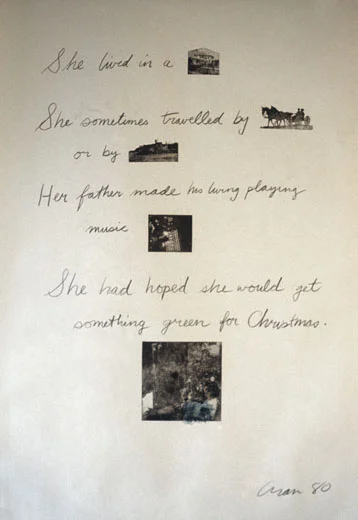 She lived in a
She sometimes travelled by
or by
Her father made his living playing
music
She had hoped she would get
something green for Christmas.
80